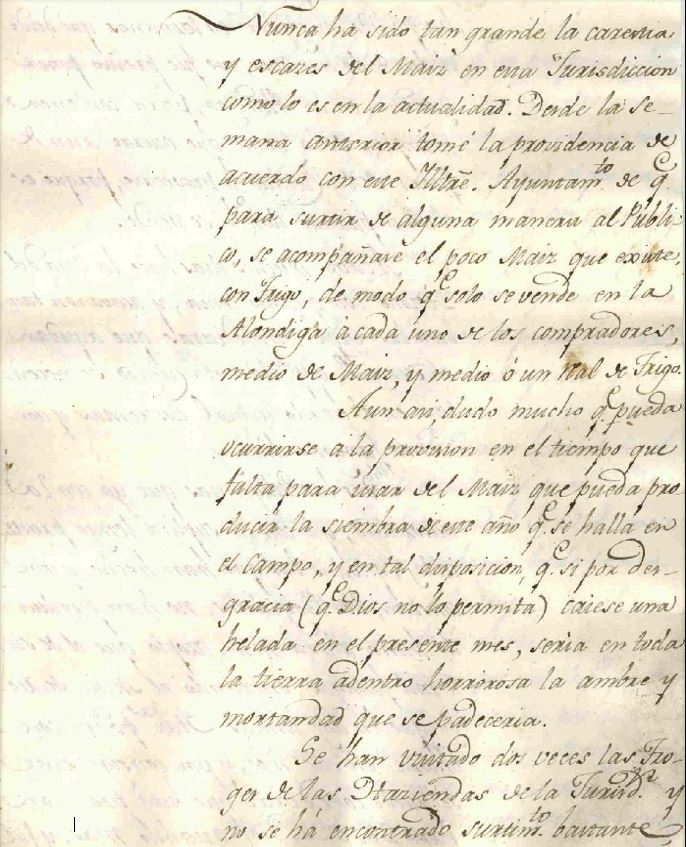 Nunca ha sido tan grande la carestia
y escasès del Maiz en esta Jurisdiccion
como lo es en la actualidad. Desde la se-
mana anterior tomé la providencia de
acuerdo con este Illtrẽ. Ayuntam.to de q.e
para surtir de alguna manera al Públi-
co, se acompañase el poco Maiz que existe,
con Trigo, de modo q.e solo se vende en la
Alondiga à cada uno de los compradores,
medio de Maiz, y medio ó un Real de Trigo.
Aun asi, dudo mucho q.e pueda
ocurrirse a la provision en el tiempo que
falta para usar del Maiz que pueda pro
ducir la siembra de este año q.e se halla en
el campo, y en tal disposicion, q.e si por des-
gracia (q.e Dios no lo permita) caiese una
helada en el presente mes, seria en toda
la tierra adentro horrorosa la ambre y
mortandad que se padeceria.
Se han visitado dos veces las Tro-
ges de las Haziendas de la Jurisd.n y
no se há encontrado surtim.to bastante,